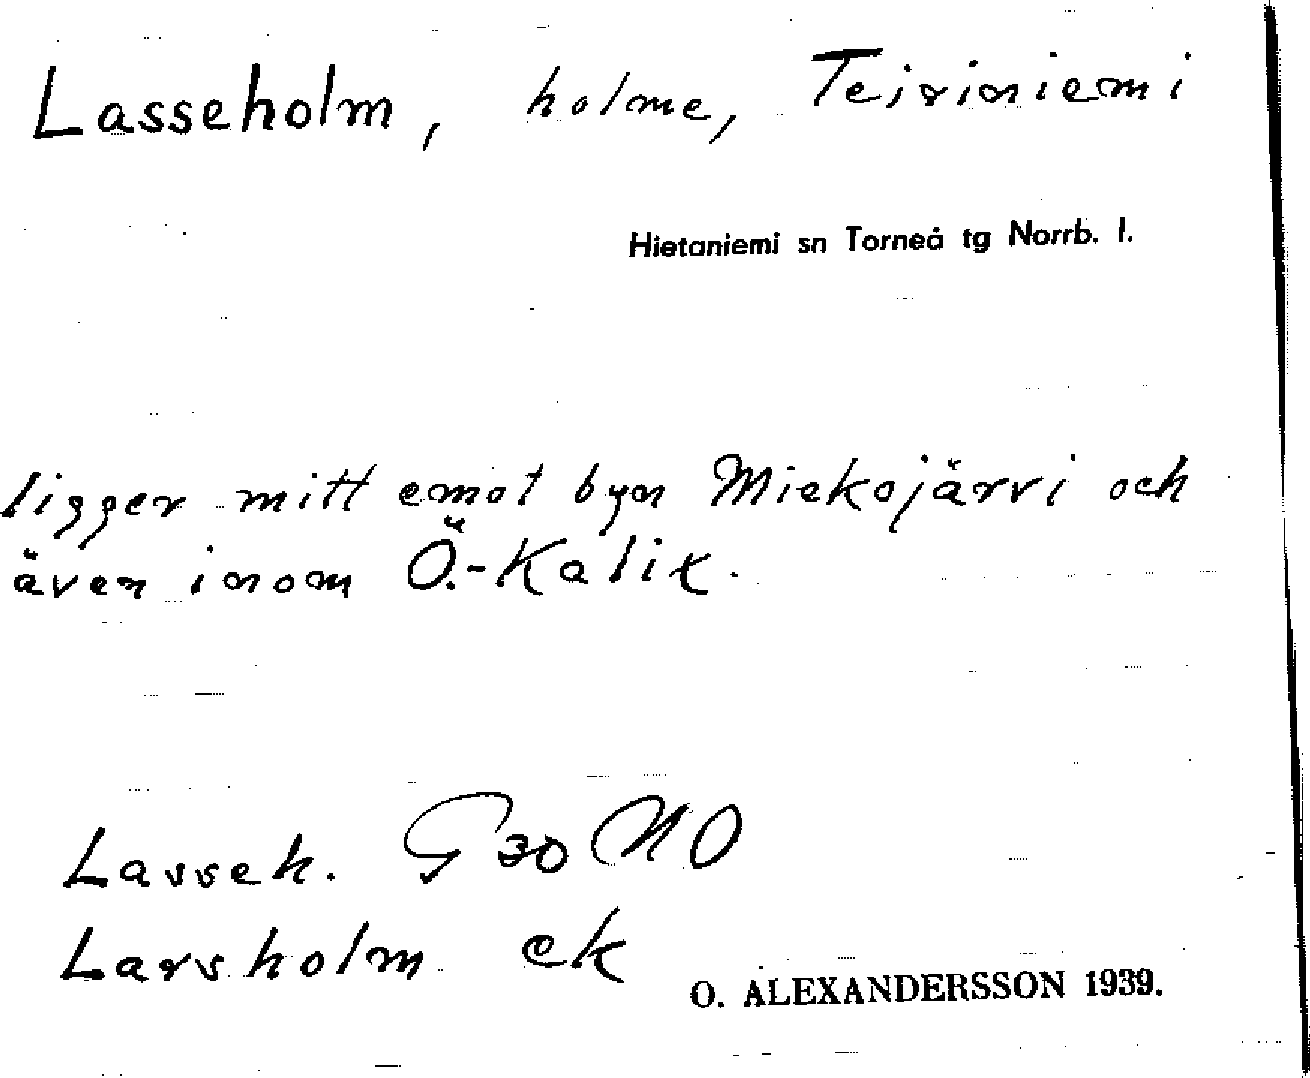 Lasseholm, holme, Teiriniemi
Hietaniemi sn Torneå tg Norrb. l.
ligger mitt emot byn Miekojärvi och
även inom Ö.-Kalix.
Lasseh. G 30 NO
Larsholm ek
O. ALEXANDERSSON 1939.